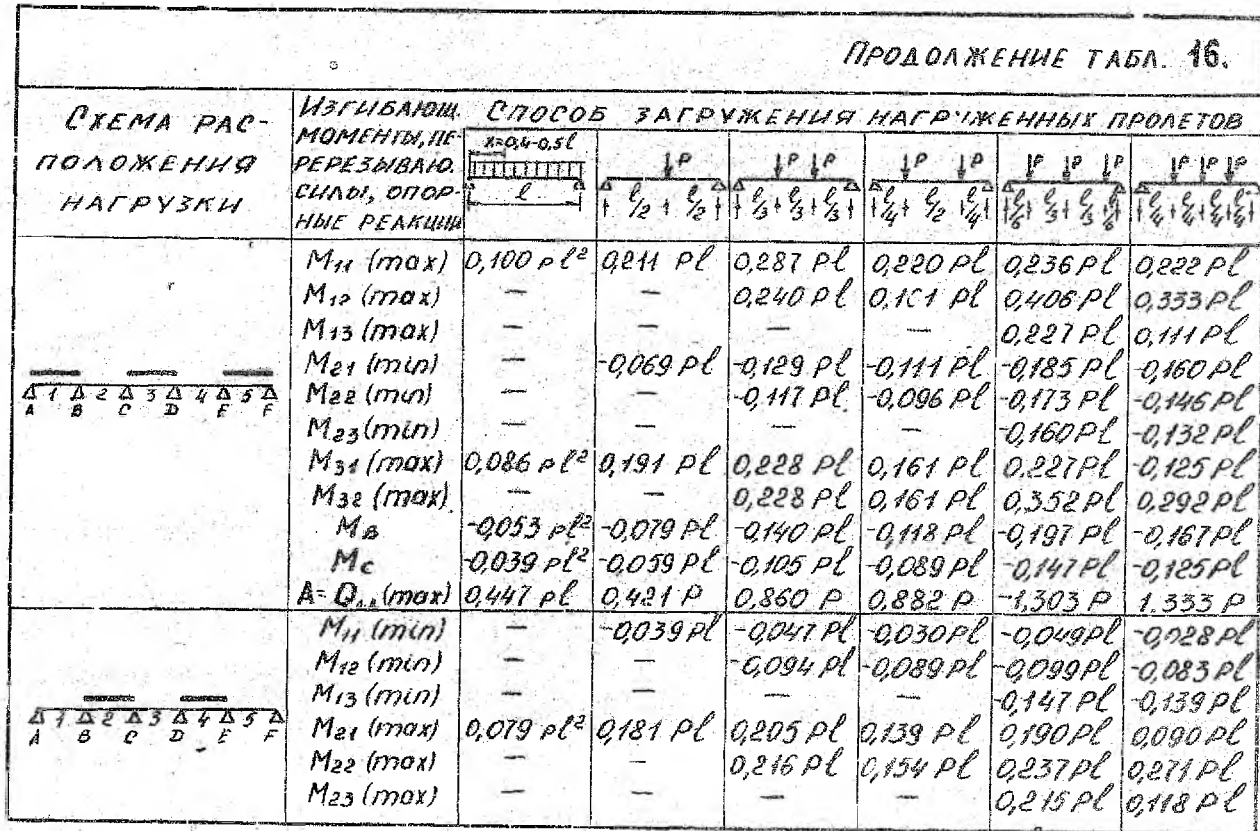 ПРОДОЛЖЕНИЕ ТАБЛ. 16.
СХЕМА РАСПОЛОЖЕНИЯ НАГРУЗКИ
ИЗГИБАЮЩ. МОМЕНТЫ, ПЕРЕРЕЗЫВАЮ. СИЛЫ, ОПОРНЫЕ РЕАКЦИИ
СПОСОБ ЗАГРУЖЕНИЯ НАГРУЖЕННЫХ ПРОЛЕТОВ
x=0,4-0,5l
l
P
l/2 l/2
P P
l/3 l/3 l/3
P P
l/4 l/2 l/4
P P P
l/6 l/3 l/3 l/6
P P P
l/4 l/4 l/4 l/4
M11 (max) 0,100 pl² 0,211 Pl 0,287 Pl 0,220 Pl 0,236 Pl 0,222 Pl
M12 (max) — — 0,240 Pl Pl 0,406 Pl 0,333 Pl
M13 (max) — — — — 0,227 Pl 0,111 Pl
M21 (min) — -0,069 Pl -0,129 Pl -0,111 Pl -0,185 Pl -0,160 Pl
M22 (min) — — -0,117 Pl. -0,096 Pl -0,173 Pl -0,146 Pl
M23 (min) — — — — -0,160 Pl -0,132 Pl
M31 (max) 0,086 pl² 0,191 Pl 0,228 Pl 0,161 Pl 0,227 Pl -0,125 Pl
M32 (max) — — 0,228 Pl 0,161 Pl 0,352 Pl 0,292 Pl
MB -0,053 pl² -0,079 Pl -0,140 Pl -0,118 Pl -0,197 Pl -0,167 Pl
MC -0,039 pl² -0,059 Pl -0,105 Pl -0,089 Pl -0,147 Pl -0,125 Pl
A= Q (max) 0,447 pl 0,421 P 0,860 P 0,882 P -1,303 P 1.333 P
1 2 3 4 5
A B C D E F
M11 (min) — -0,039 Pl -0,047 Pl -0,030 Pl -0,049 Pl -0,028 Pl
M12 (min) — — -0,094 Pl -0,089 Pl -0,099 Pl -0,083 Pl
M13 (min) — — — — -0,147 Pl -0,139 Pl
M21 (max) 0,079 pl² 0,181 Pl 0,205 Pl 0,139 Pl 0,190 Pl 0,090 Pl
M22 (max) — — 0,216 Pl 0,154 Pl 0,237 Pl 0,271 Pl
M23 (max) — — — — 0,215 Pl 0,118 Pl
1 2 3 4 5
A B C D E F